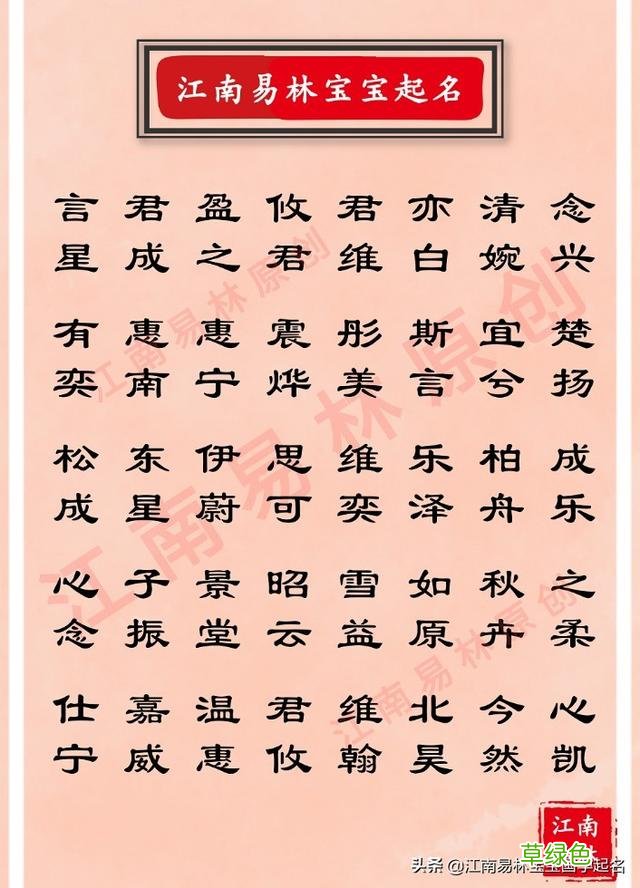 江南易林宝宝起名
言 君 盈 攸 君 亦 清 念
星 成 之 君 维 白 婉 兴
有 惠 惠 震 彤 斯 宜 楚
奕 南 宁 烨 美 言 兮 扬
松 东 伊 思 维 乐 柏 成
成 星 蔚 可 奕 泽 舟 乐
心 子 景 昭 雪 如 秋 之
念 振 堂 云 益 原 卉 柔
仕 嘉 温 君 维 北 今 心
宁 威 惠 攸 翰 昊 然 凯
江南易林原创
江南易林原创
江南易林原创
江南
草绿色
头条 @江南易林宝宝国学起名